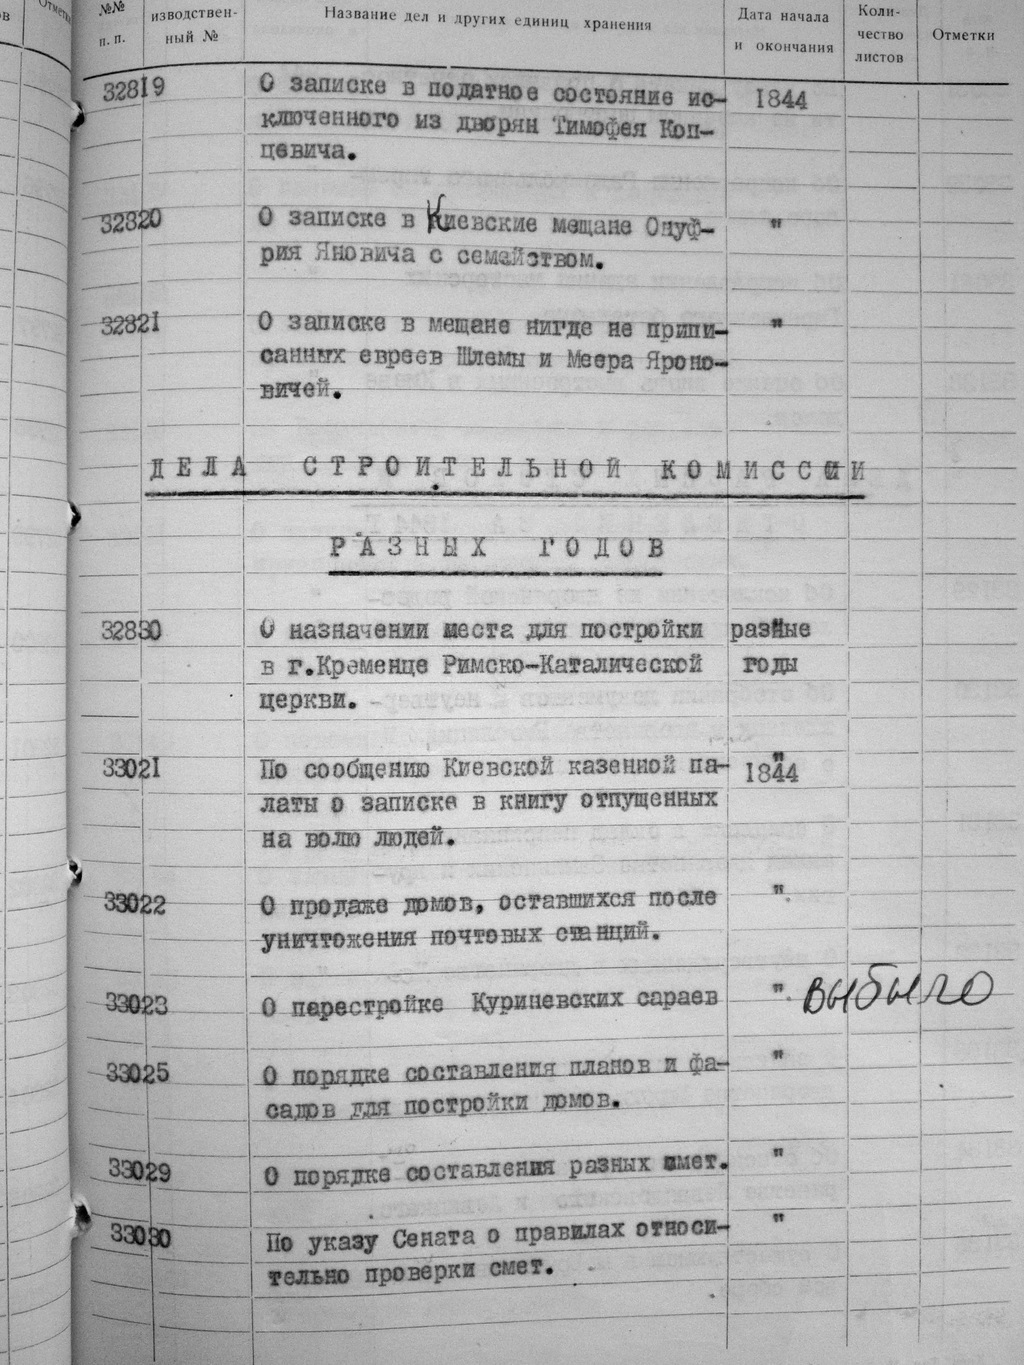 №№ п. п.
изводствен-
ный №
Название дел и других единиц хранения
Дата начала
и окончания
Коли-
чество
листов
Отметки
32819 О записке в податное состояние ис- 1844
ключенного из дворян Тимофея Коп-
цевича.
32820 О записке в Киевские мещане Онуф- "
рия Яновича с семейством.
32821 О записке в мещане нигде не припи- "
санных евреев Шлемы и Меера Яроно-
вичей.
ДЕЛА СТРОИТЕЛЬНОЙ КОМИССИИ
РАЗНЫХ ГОДОВ
32830 О назначении места для постройки разные
в г.Кременце Римско-Каталической годы
церкви.
33021 По сообщению Киевской казенной па- 1844
латы о записке в книгу отпущенных
на волю людей.
33022 О продаже домов, оставшихся после "
уничтожения почтовых станций.
33023 О перестройке Куриневских сараев " выбыло
33025 О порядке составления планов и фа- "
садов для постройки домов.
33029 О порядке составления разных смет. "
33030 По указу Сената о правилах относи- "
тельно проверки смет.